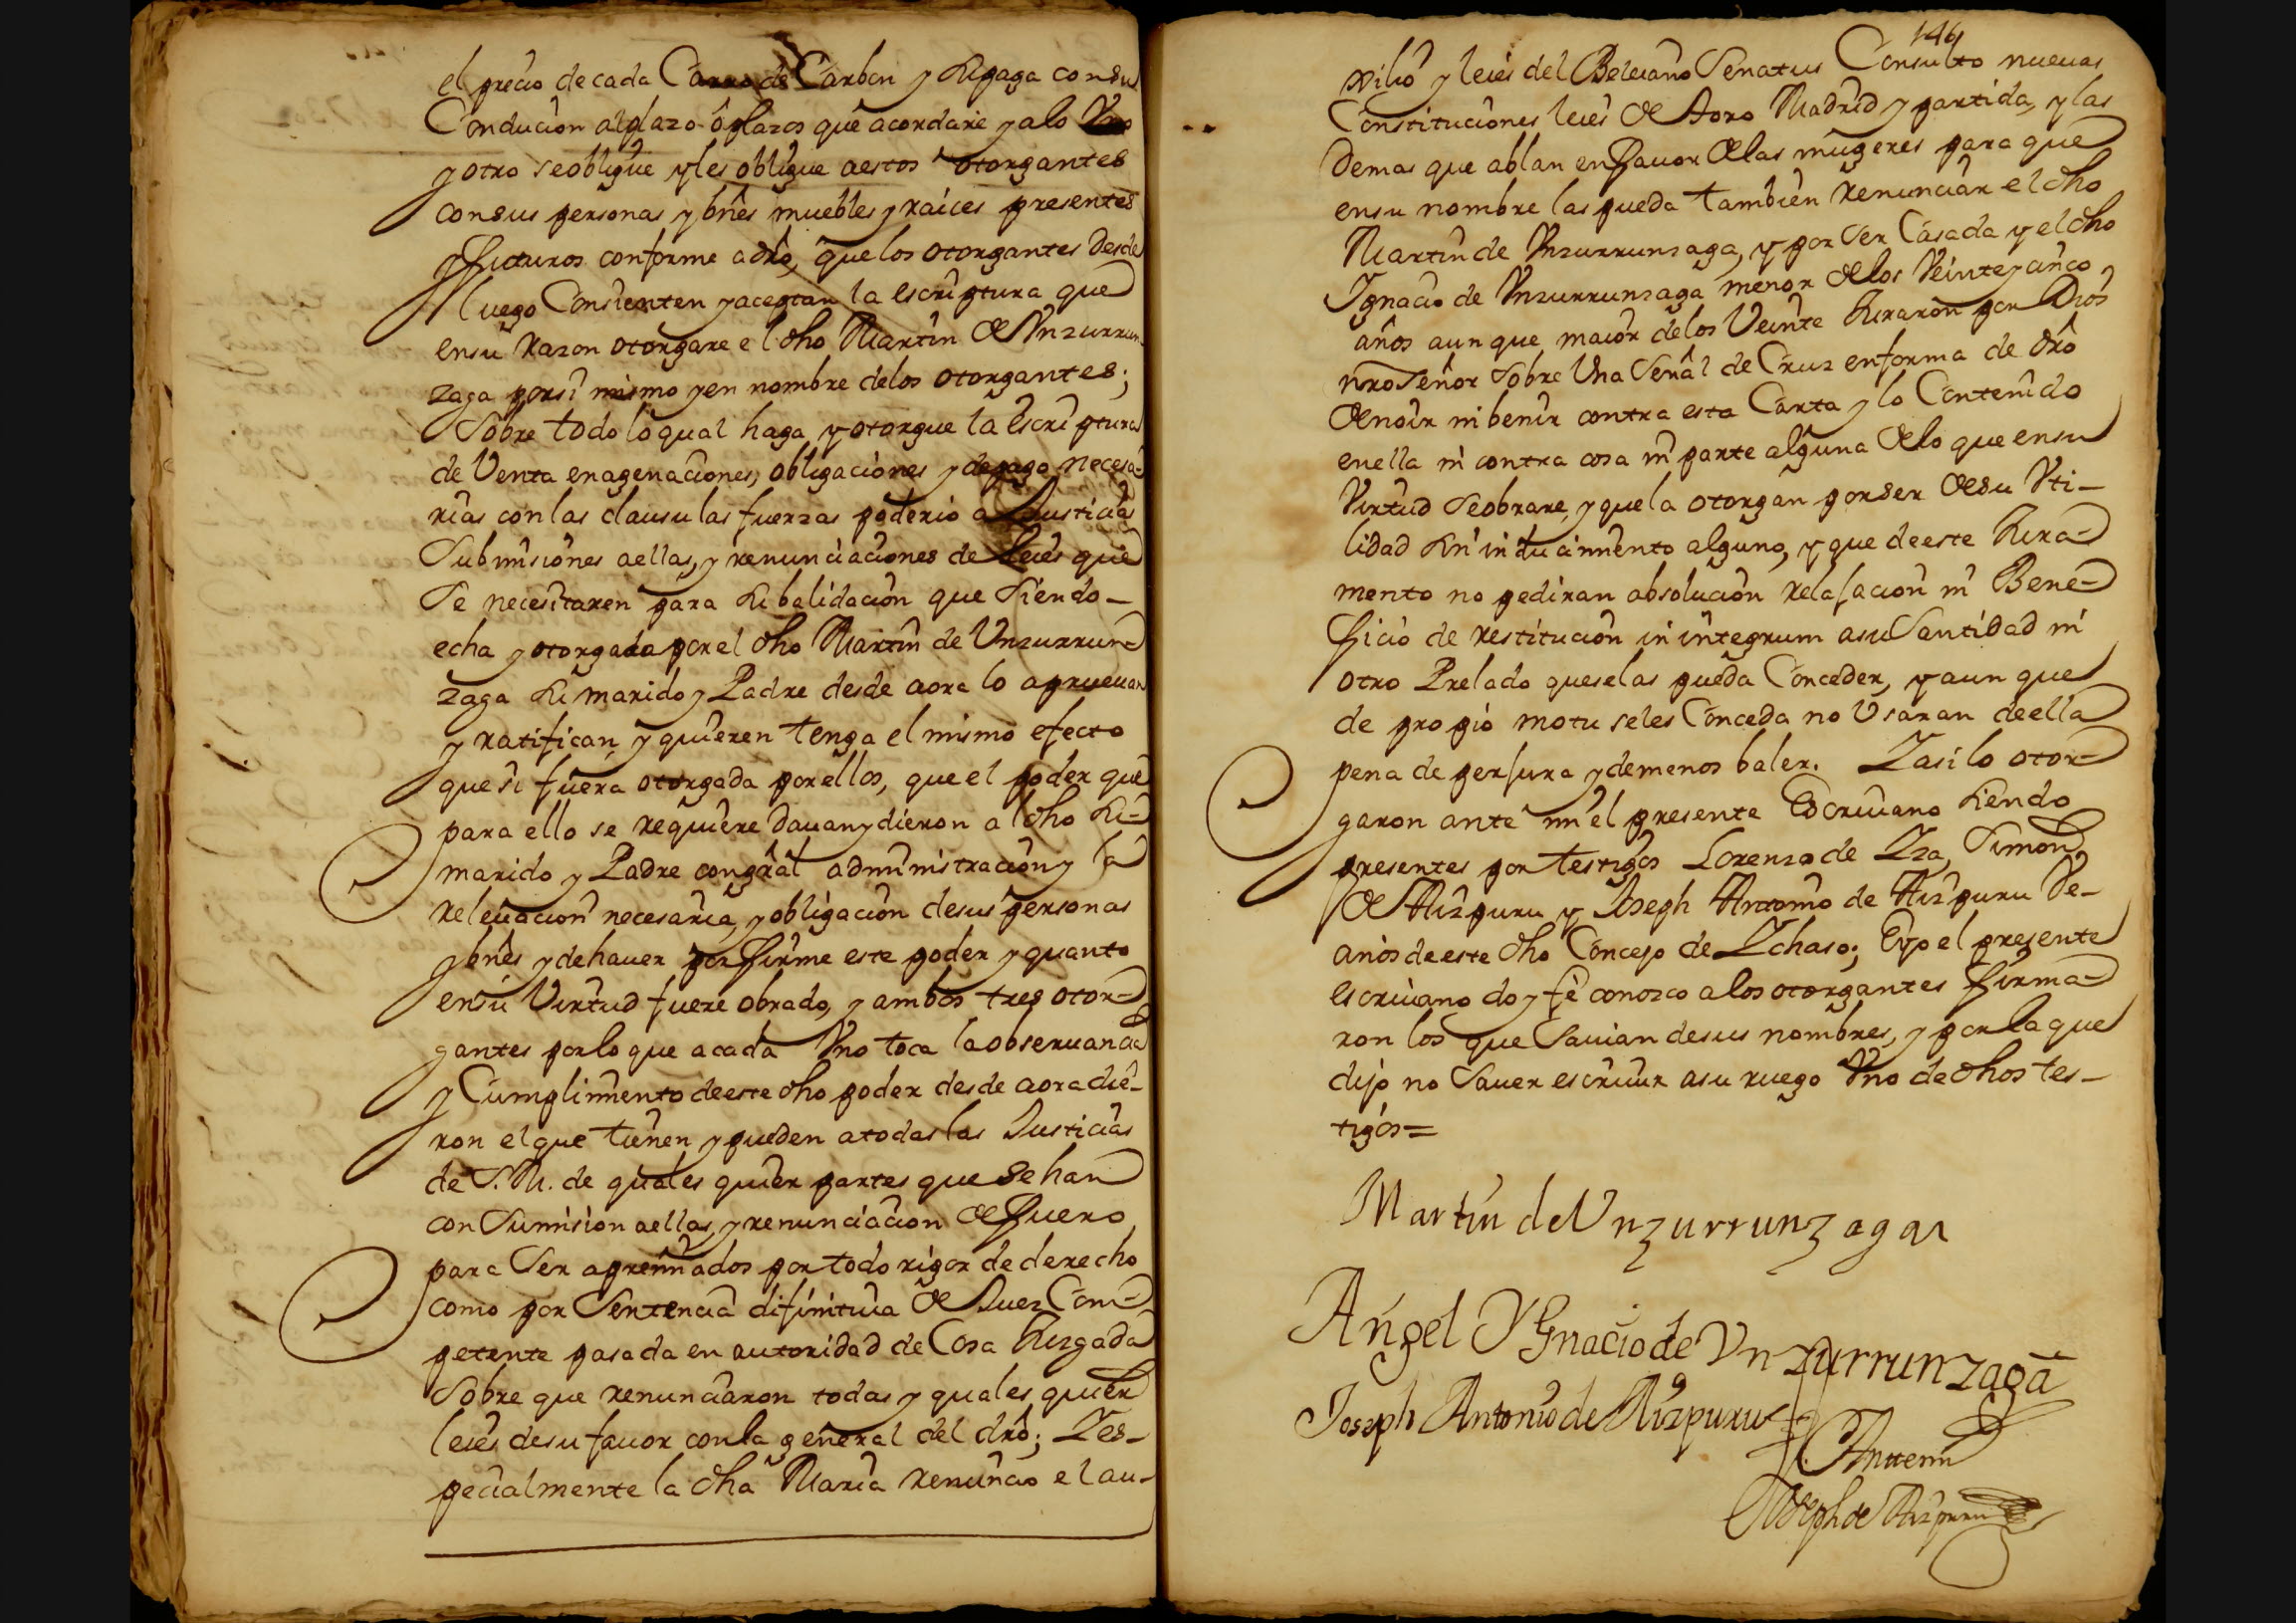 el precio de cada Carro de Carbon y su paga con su
Conducion al plazo ô plazos que acordare y a lo Vno
y otro se obligue y les obligue a estos otorgantes
con sus personas y bnês muebles y raices presentes
y futuros conforme a drô, que los otorgantes desde
luego Consienten y aceptan la escriptura que
en su razon otorgare el dho Martin de Vnzurrun
zaga por si mismo y en nombre de los otorgantes;
Sobre todo lo qual haga y otorgue la Escriptura
de Venta enagenaciones, obligaciones y de pago necesa-
rias con las clausulas fuerzas poderio a Justicias
Submisiones a ellas, y renunciaciones de leies que
se necesitaren para su balidacion que siendo-
echa y otorgada por el dho Martin de Vnzurrun-
zaga su marido y Padre desde aora lo aprueuan
y ratifican, y quieren tenga el mismo efecto
que si fuera otorgada por ellos, que el poder que
para ello se requiere dauan y dieron al dho su-
marido y Padre con grâl administracion y la
releuacion necesaria, y obligacion de sus personas
y bnês y de hauer por firme este poder y quanto
en su Virtud fuere obrado, y ambos tres otor-
gantes por lo que a cada Vno toca la obseruancia
y Cumplimiento de este dho poder desde aora die-
ron el que tienen y pueden a todas las Justicias
de S. M. de quales quier partes que se han
con Sumision a ellas, y renunciacion de fuero
para Ser apremiados por todo rigor de derecho
como por Sentencia difinitiua de Juez Com-
petente pasada en autoridad de Cosa Juzgada
Sobre que renunciaron todas y quales quier
leies de su fauor con la general del drô; Y es-
pecialmente la dha Maria renuncio el au-
146
xilio y leies del Beleiano Senatus Consulto nueuas
Constituciones leies de toro Madrid y partida, y las
Demas que ablan en fauor de las mugeres para que
en su nombre las pueda tambien renunciar el dho
Martin de Vnzurrunzaga, y por Ser Casada y el dho
Ignacio de Vnzurrunzaga menor de los Veinte y cinco
años aun que maior de los Veinte Juraron por Dios
nrô Señor Sobre Vna Señal de Cruz en forma de drô
de no ir ni benir contra esta Carta y lo Contenido
en ella ni contra cosa ni parte alguna de lo que en su
Virtud se obrare, y que la otorgan por ser de su Vti-
lidad sin inducimiento alguno, y que de este Jura-
mento no pediran absolucion relajacion ni Bene-
ficio de restitucion in integrum a su Santidad ni
otro Prelado que se las pueda Conceder, y aun que
de propio motu se les Conceda no Vsaran de ella
pena de perjura y de menos baler. Y asi lo otor-
garon ante mi el presente Escriuano siendo
presentes por testigos Lorenzo de Yza, Simon
de Aizpuru y Joseph Antonio de Aizpuru Ve-
cinos de este dho Concejo de Ychaso; E yo el presente
escriuano doy fe conozco a los otorgantes firma-
ron los que Sauian de sus nombres, y por la que
dijo no Sauer escriuir a su ruego Vno de dhos tes-
tigos=
Martin de Vnzurrunzaga
Angel Ygnacio de Vnzurrunzaga
Joseph Antonio de Aizpuru
Ante mi
Joseph de Aizpuru